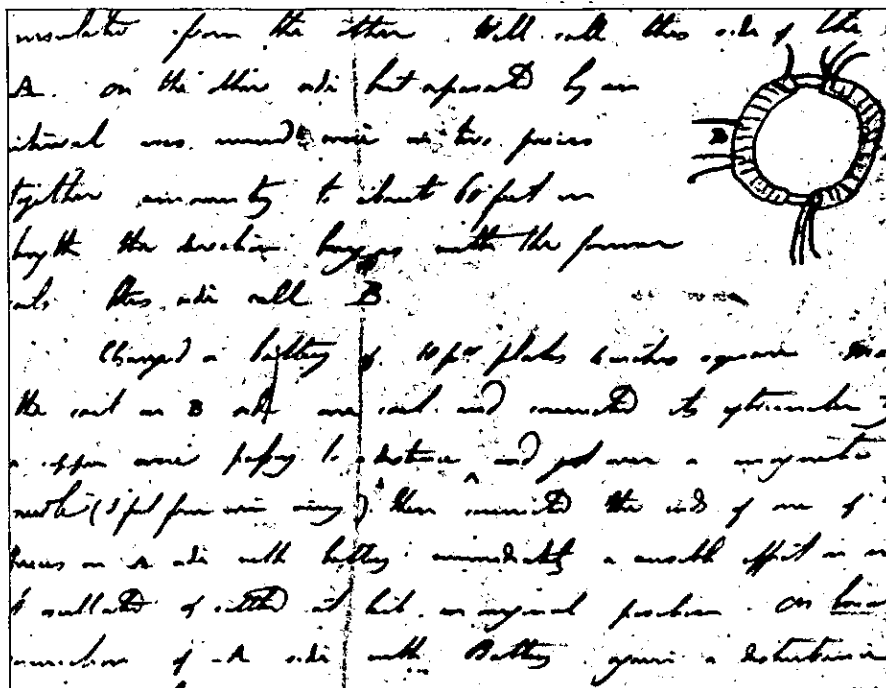 insulated from the other. Will call this side of the
A. on the other side but separated by an
interval was wound wire in two pieces
together amounting to about 60 feet in
length the direction being as with the former
coils this side call B.
B
Charged a battery of 10 pr plates 4 inches square. Made
the coil on B side one coil and connected its extremities by
a copper wire passing to a distance and just over a magnetic
needle (3 feet from wire ring) then connected the ends of one of the
pieces on A side with battery immediately a sensible effect on needle
It oscillated & settled at last in original position. On breaking
connection of A side with Battery again a disturbance